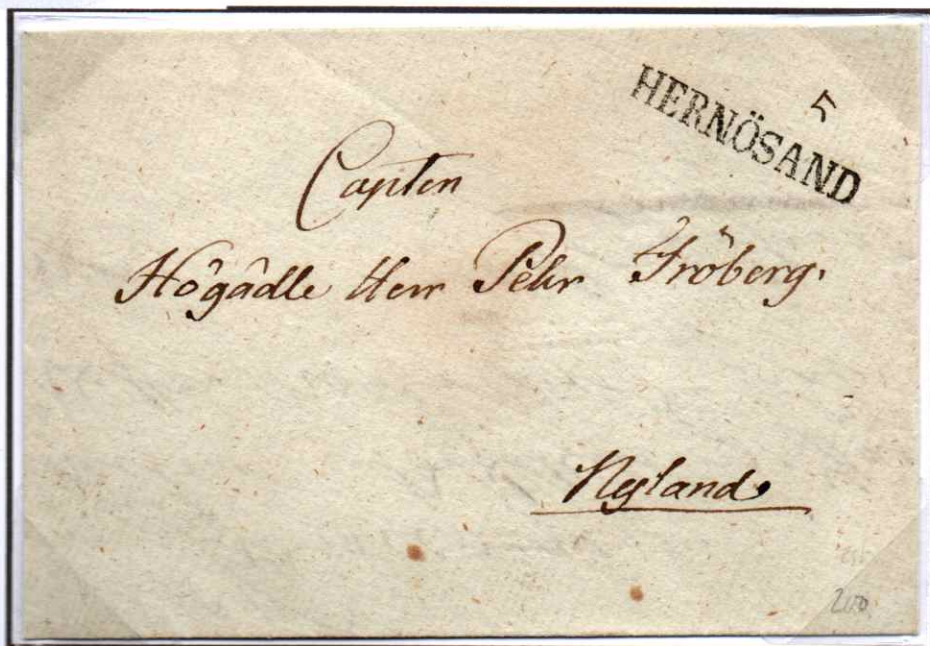 5
HERNÖSAND
Capten
Högädle Herr Pehr Fröberg.
Nyland